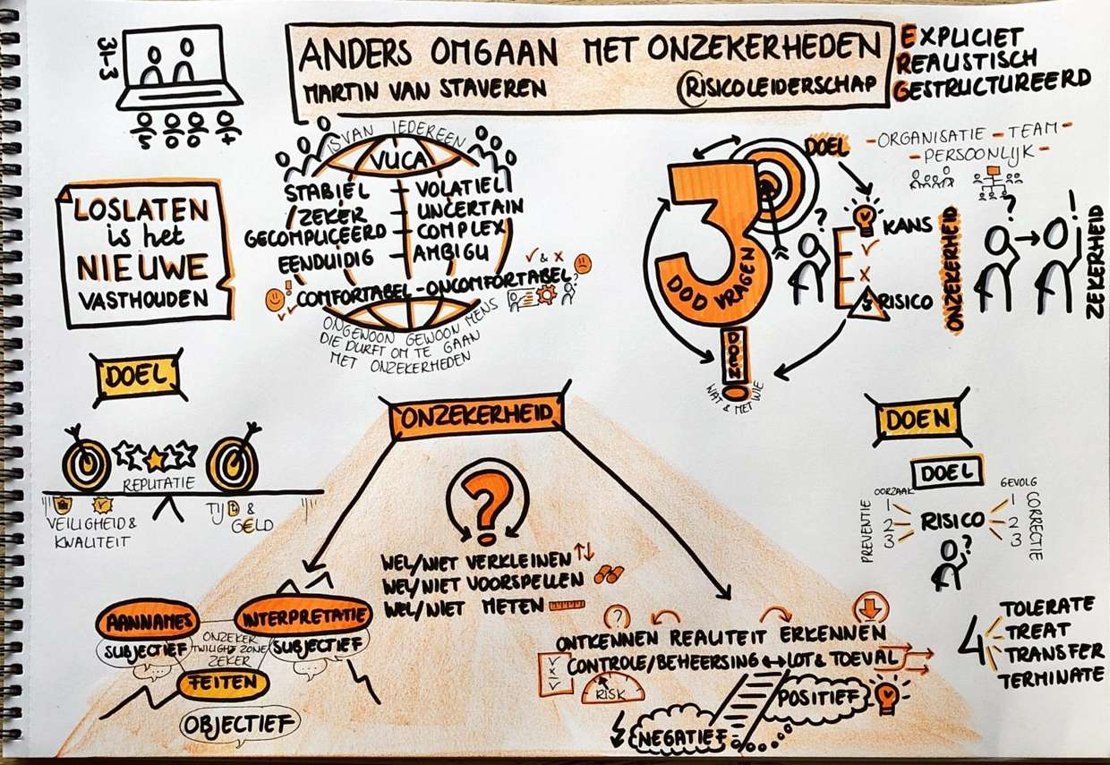 31-3
5 0 0 +
ANDERS OMGAAN MET ONZEKERHEDEN
MARTIN VAN STAVEREN
RISICOLEIDERSCHAP
EXPLICIET
REALISTISCH
GESTRUCTUREERD
LOSLATEN
is het
NIEUWE
VASTHOUDEN
IS VAN IEDEREEN
VUCA
STABIEL - VOLATIEL
ZEKER - UNCERTAIN
GECOMPLICEERD - COMPLEX
EENDUIDIG - AMBIGU
✓ & X
COMFORTABEL - ONCOMFORTABEL
ONGEWOON GEWOON MENS
DIE DURFT OM TE GAAN
MET ONZEKERHEDEN
3
DOD VRAGEN
DOEN
WAT & MET WIE
DOEL
- ORGANISATIE - TEAM -
- PERSOONLIJK -
?
KANS
RISICO
ONZEKERHEID
?
!
ZEKERHEID
DOEL
REPUTATIE
VEILIGHEID &
KWALITEIT
TIJD &
GELD
ONZEKERHEID
?
WEL/NIET VERKLEINEN
WEL/NIET VOORSPELLEN
WEL/NIET METEN
AANNAMES
SUBJECTIEF
INTERPRETATIE
SUBJECTIEF
ONZEKER
TWILIGHT ZONE
ZEKER
FEITEN
OBJECTIEF
?
ONTKENNEN REALITEIT ERKENNEN
CONTROLE/BEHEERSING ↔ LOT & TOEVAL
RISK
POSITIEF
NEGATIEF
DOEN
DOEL
OORZAAK
GEVOLG
PREVENTIE
1
2
3
RISICO
1
2
3
CORRECTIE
?
4
TOLERATE
TREAT
TRANSFER
TERMINATE